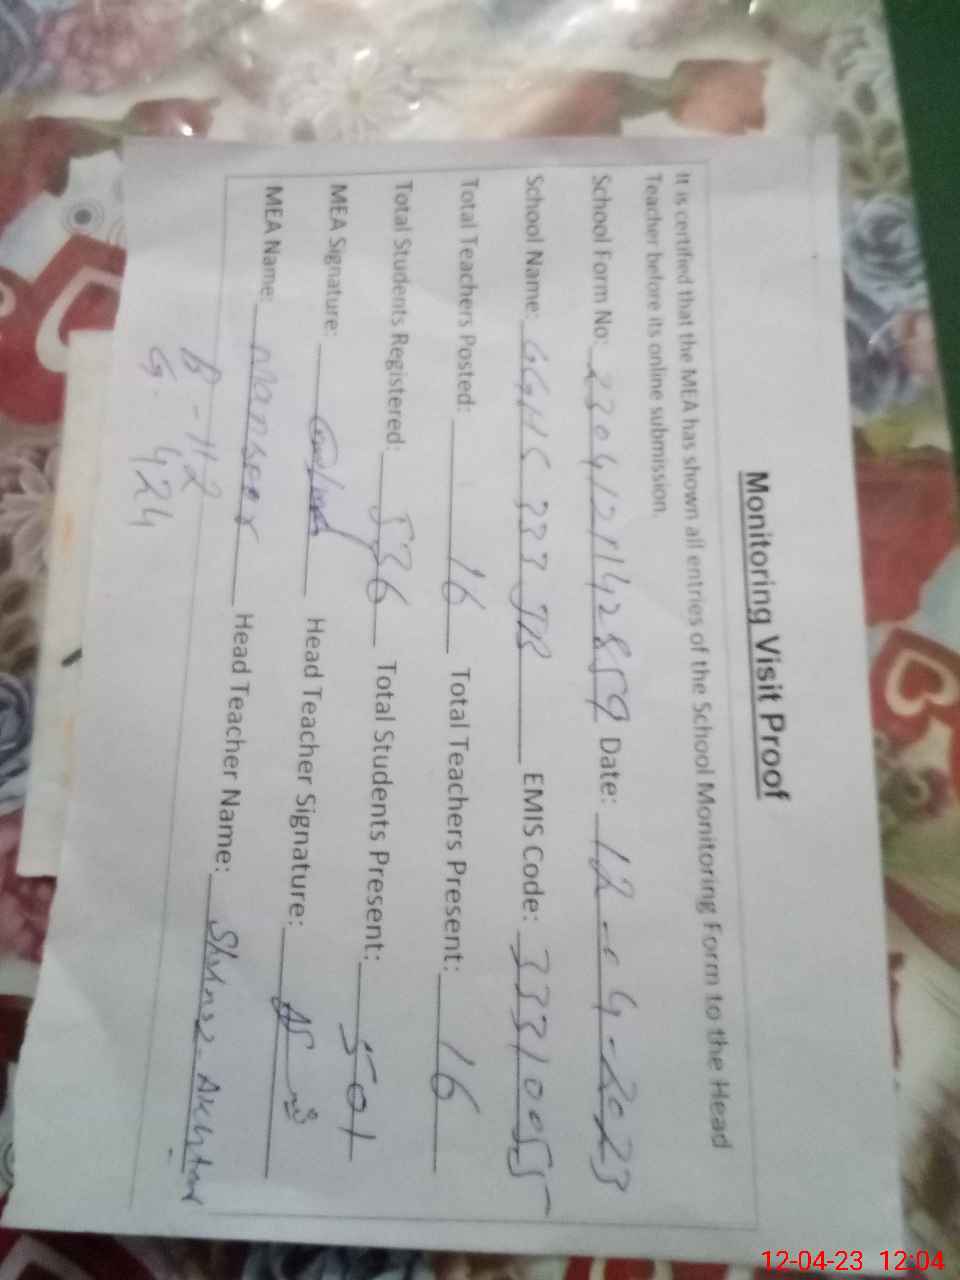 Monitoring Visit Proof
It is certified that the MEA has shown all entries of the School Monitoring Form to the Head
Teacher before its online submission.
School Form No: 2304121142859 Date: 12-4-2023
School Name: GGHS 333 JB EMIS Code: 33310055
Total Teachers Posted: 16 Total Teachers Present: 16
Total Students Registered: 536 Total Students Present: 501
MEA Signature: Head Teacher Signature:
MEA Name: Mansoor Head Teacher Name: Shahnaz Akhtar
B-112
G. 424
12-04-23 12:04